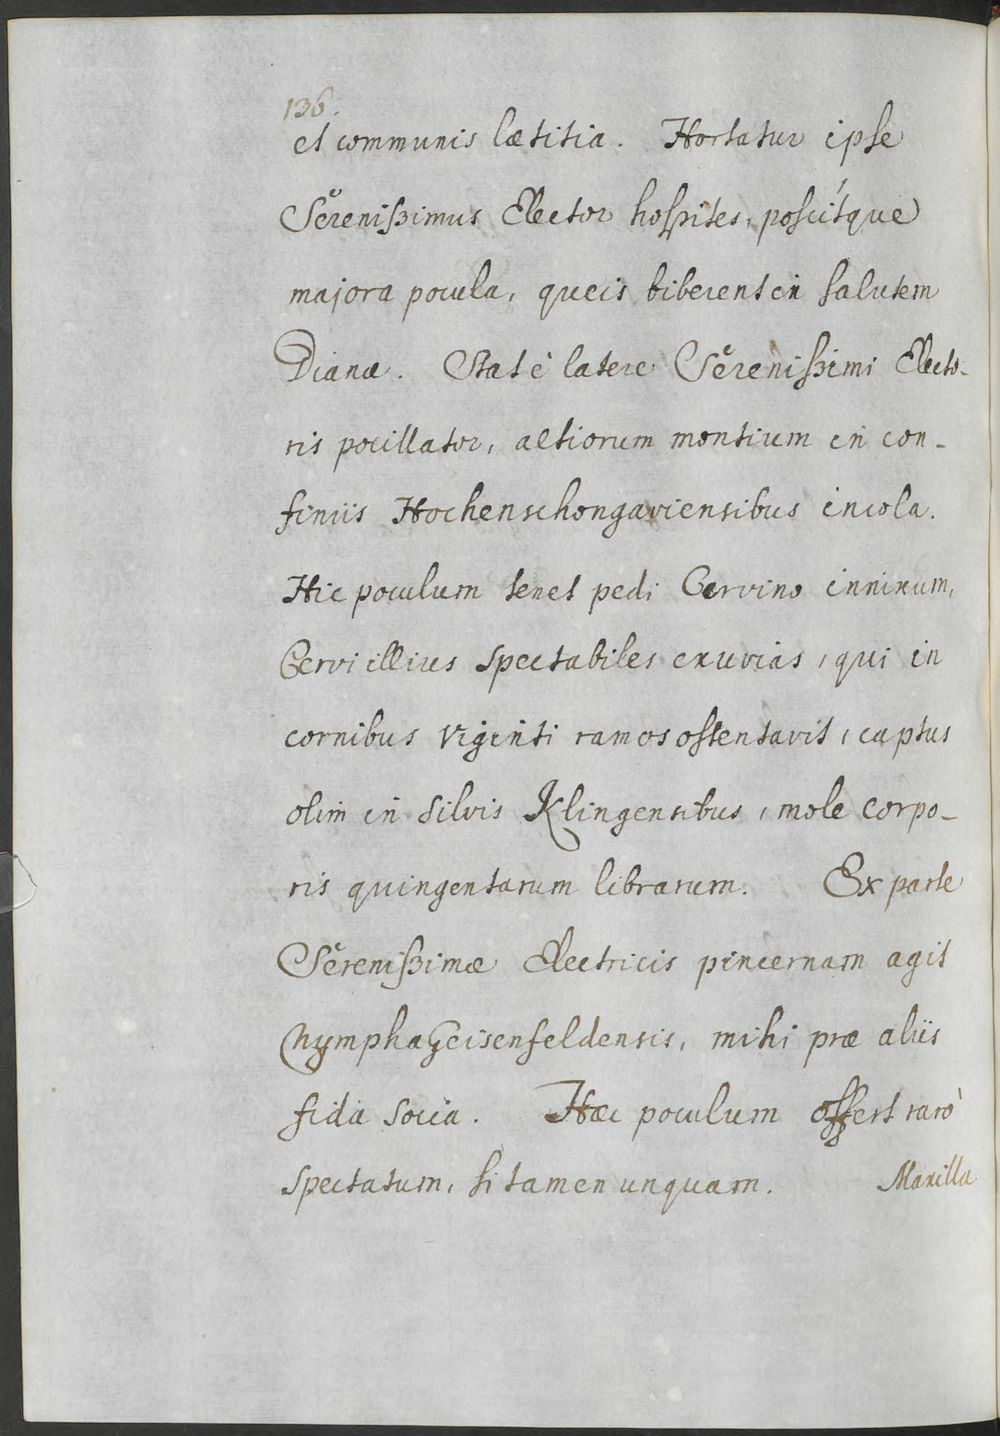 136.
et communis lætitia. Hortatur ipse
Serenißimus Elector hospites, poscítque
majora pocula, queis biberent in salutem
Dianæ. Stat è latere Serenißimi Electo-
ris pocillator, altiorum montium in con-
finiis Hochenschongaviensibus incola.
Hic poculum tenet pedi Cervino innixum,
Cervi illius spectabiles exuvias, qui in
cornibus viginti ramos ostentavit, captus
olim in silvis Klingensibus, mole corpo-
ris quingentarum librarum. Ex parte
Serenißimæ Electricis pincernam agit
Nympha Geisenfeldensis, mihi præ aliis
fida socia. Hæc poculum offert rarò
spectatum, si tamen unquam. Maxilla